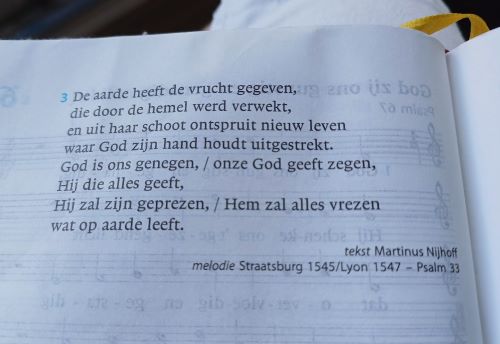 3 De aarde heeft de vrucht gegeven,
die door de hemel werd verwekt,
en uit haar schoot ontspruit nieuw leven
waar God zijn hand houdt uitgestrekt.
God is ons genegen, / onze God geeft zegen,
Hij die alles geeft,
Hij zal zijn geprezen, / Hem zal alles vrezen
wat op aarde leeft.
tekst Martinus Nijhoff
melodie Straatsburg 1545/Lyon 1547 – Psalm 33